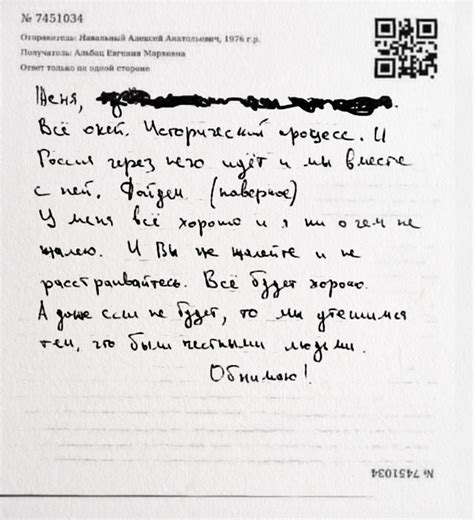 № 7451034
Отправитель: Навальный Алексей Анатольевич, 1976 г.р.
Получатель: Альбац Евгения Марковна
Ответ только по одной стороне
Женя,
Всё окей. Исторический процесс. И
Россия через него идёт и мы вместе
с ней. Дойдем (наверное)
У меня всё хорошо и я ни о чем не
жалею. И Вы не жалейте и не
расстраивайтесь. Всё будет хорошо.
А даже если не будет, то мы утешимся
тем, что были честными людьми.
Обнимаю!
№ 7451034